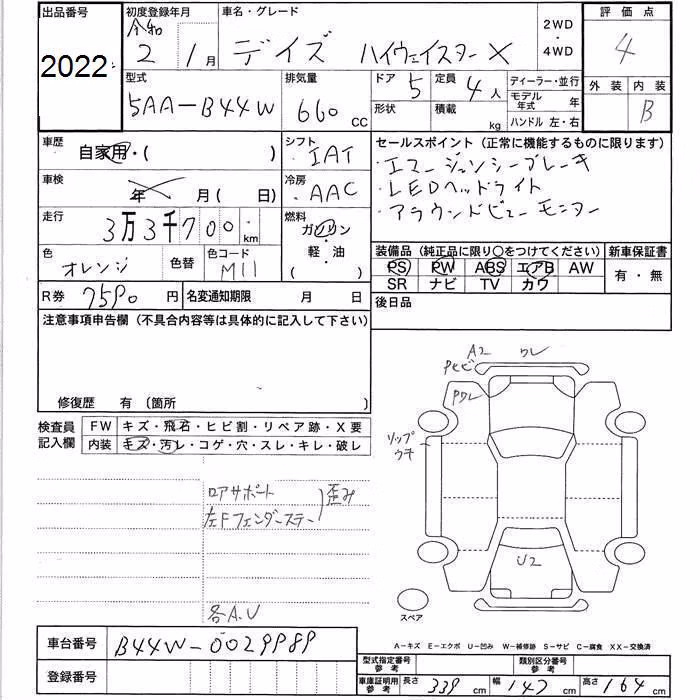 出品番号 初度登録年月 車名・グレード 2WD ・ 4WD 評価点
2022 令和 2年 1月 デイズ ハイウェイスターX 4
型式 排気量 ドア 5 定員 4人 ディーラー・並行 外装 内装
5AA-B44W 660cc 形状 積載 kg モデル年式 年 B
ハンドル 左・右
車歴 自家用・( ) シフト IAT セールスポイント (正常に機能するものに限ります)
・エマージェンシーブレーキ
車検 年 月( 日) 冷房 AAC ・LEDヘッドライト
走行 3万3千700km 燃料 ガソリン・軽油 ( ) ・アラウンドビューモニター
色 オレンジ 色替 色コード M11 装備品 (純正品に限り〇をつけてください) 新車保証書
PS PW ABS エアB AW 有・無
SR ナビ TV カワ
R券 7590円 名変通知期限 月 日 後日品
注意事項申告欄 (不具合内容等は具体的に記入して下さい)
修復歴 有 〔箇所 〕
検査員記入欄 FW キズ・飛石・ヒビ割・リペア跡・X要
内装 キズ・汚レ・コゲ・穴・スレ・キレ・破レ
A2 ワレ
Pヒビ
Pワレ
リップ
ウチ
ロアサポート
左Fフェンダーステー 歪み
U2
各A.U
スペア
A-キズ E-エクボ U-凹み W-補修跡 S-サビ C-腐食 XX-交換済
車台番号 B44W-0029989
登録番号
型式指定番号 参考 類別区分番号 参考
車庫証明用 参考 長さ 339cm 幅 147cm 高さ 164cm